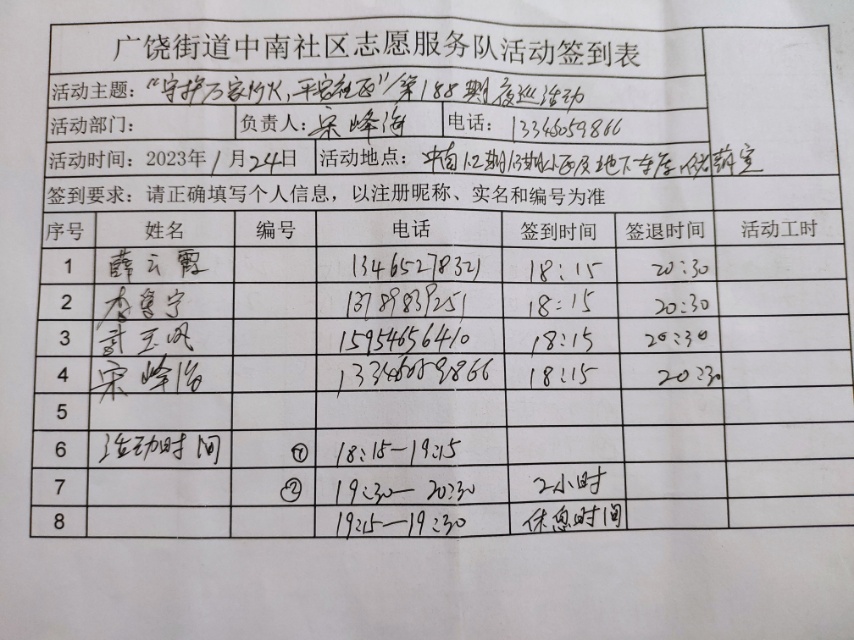 广饶街道中南社区志愿服务队活动签到表
活动主题：“守护万家灯火，平安社区”第188期夜巡活动
活动部门： 负责人：宋峰海 电话：13346059866
活动时间：2023年1月24日 活动地点：中南1.2期13期小区及地下车库.储藏室
签到要求：请正确填写个人信息，以注册昵称、实名和编号为准
序号 姓名 编号 电话 签到时间 签退时间 活动工时
1 薛云霞 13465278321 18:15 20:30
2 李鲁宁 13789839251 18:15 20:30
3 玉凤 15954656410 18:15 20:30
4 宋峰海 13346059866 18:15 20:30
5
6 活动时间 ① 18:15—19:15
7 ② 19:30—20:30 2小时
8 19:15—19:30 休息时间